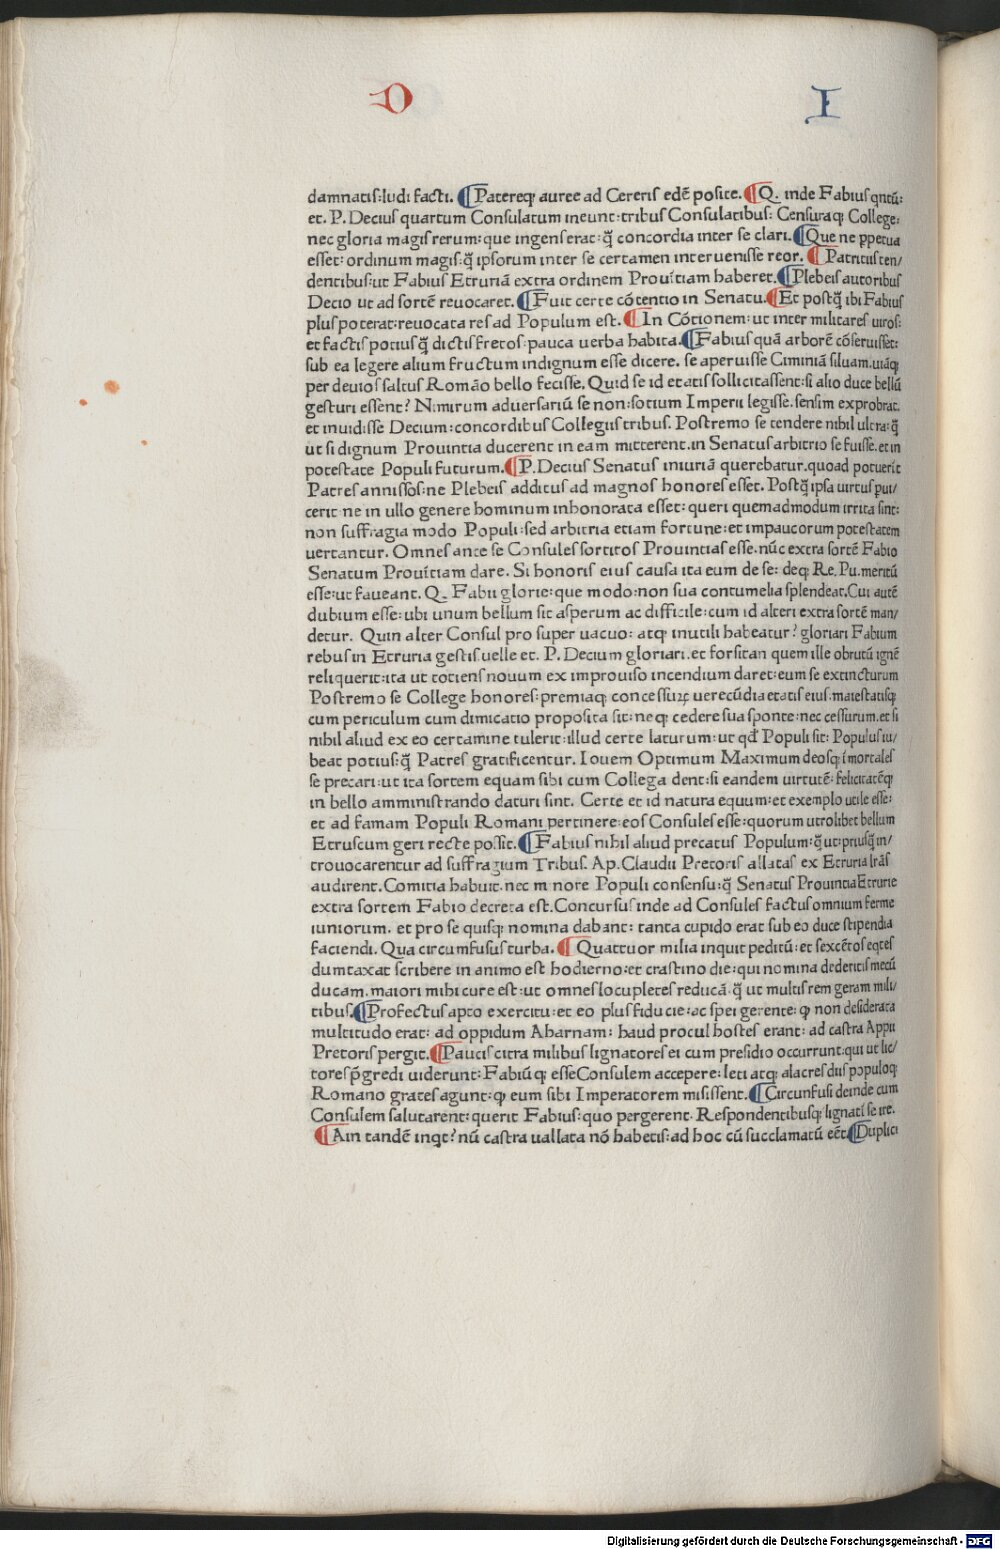 D I
damnatis:ludi facti. ¶Patereqꝫ auree ad Cereris edē posite. ¶Q. inde Fabius qntū:
et. P. Decius quartum Consulatum ineunt:tribus Consulatibus: Censuraqꝫ College:
nec gloria magis rerum:que ingens erat:q̄ concordia inter se clari. ¶Que ne ꝑpetua
esset:ordinum magis:q̄ ipsorum inter se certamen intervenisse reor. ¶Patritus ten/
dentibus:ut Fabius Etruriā extra ordinem Prouītiam haberet. ¶Plebeis autoribus
Decio ut ad sortē reuocaret. ¶Fuit certe cōtentio in Senatu. ¶Et postq̄ ibi Fabius
plus poterat:reuocata res ad Populum est. ¶In Cōtionem: ut inter militares uiros:
et factis potius q̄ dictis fretos:pauca uerba habita. ¶Fabius quā arborē cōseruisset:
sub ea legere alium fructum indignum esse dicere. se aperuisse Ciminiā siluam.uiāqꝫ
per deuios saltus Romāo bello fecisse. Quid se id etatis sollicitassent:si alio duce bellū
gesturi essent? Nimirum aduersariū se non:sotium Imperii legisse.sensim exprobrat.
et inuidisse Decium:concordibus Collegiis tribus. Postremo se tendere nihil ultra:q̄
ut si dignum Prouintia ducerent in eam mitterent.in Senatus arbitrio se fuisse.et in
potestate Populi futurum. ¶P. Decius Senatus iniuriā querebatur.quoad potuerit
Patres annissos:ne Plebeis additus ad magnos honores esset. Postq̄ ipsa uirtus ꝑui/
cerit ne in ullo genere hominum inhonorata esset: queri quemadmodum irrita sint:
non suffragia modo Populi:sed arbitria etiam fortune:et impaucorum potestatem
uertantur. Omnes ante se Consules sortitos Prouintias esse.nūc extra sortē Fabio
Senatum Prouītiam dare. Si honoris eius causa ita eum de se: deqꝫ Re. Pu. meritū
esse:ut faueant. Q. Fabii glorie:que modo:non sua contumelia splendeat.Cui autē
dubium esse:ubi unum bellum sit asperum ac difficile:cum id alteri extra sortē man/
detur. Quin alter Consul pro super uacuo: atqꝫ inutili habeatur? gloriari Fabium
rebus in Etruria gestis:uelle et. P. Decium gloriari.et forsitan quem ille obrutū ignē
reliquerit:ita ut totiens nouum ex improuiso incendium daret:eum se extincturum
Postremo se College honores:premiaqꝫ concessuꝝ uerecūdia etatis eius.maiestatisqꝫ
cum periculum cum dimicatio proposita sit:neqꝫ cedere sua sponte:nec cessurum.et si
nihil aliud ex eo certamine tulerit:illud certe laturum:ut qđ Populi sit: Populus iu/
beat potius:q̄ Patres gratificentur. Iouem Optimum Maximum deosqꝫ īmortales
se precari:ut ita sortem equam sibi cum Collega dent:si eandem uirtutē:felicitatēqꝫ
in bello amministrando daturi sint. Certe et id natura equum:et exemplo utile esse:
et ad famam Populi Romani pertinere:eos Consules esse:quorum utrolibet bellum
Etruscum geri recte possit. ¶Fabius nihil aliud precatus Populum:q̄ ut:priusq̄ in/
trouocarentur ad suffragium Tribus. Ap. Claudii Pretoris allatas ex Etruria lr̄as
audirent. Comitia habuit.nec m nore Populi consensu:q̄ Senatus Prouintia Etrurie
extra sortem Fabio decreta est.Concursus inde ad Consules factus omnium ferme
iuniorum. et pro se quisqꝫ nomina dabant: tanta cupido erat sub eo duce stipendia
faciendi. Qua circumfusus turba. ¶Quattuor milia inquit peditū:et sexcētos eqtes
dumtaxat scribere in animo est hodierno:et crastino die:qui nomina dederitis mecū
ducam.maiori mihi cure est:ut omnes locupletes reducā.q̄ ut multis rem geram mili/
tibus. ¶Profectus apto exercitu:et eo plus fiducie:ac spei gerente:qꝫ non desiderata
multitudo erat: ad oppidum Aharnam: haud procul hostes erant: ad castra Appii
Pretoris pergit. ¶Paucis citra milibus lignatores ei cum presidio occurrunt:qui ut lic/
tores p̄gredi uiderunt:Fabiūqꝫ esse Consulem accepere:leti atqꝫ alacres diis populoqꝫ
Romano grates agunt:qꝫ eum sibi Imperatorem misissent. ¶Circunfusi deinde cum
Consulem salutarent:querit Fabius:quo pergerent. Respondentibusqꝫ lignatū se ire.
¶Ain tandē inqt? nū castra uallata nō habetis:ad hoc cū succlamatū eēt ¶Duplici
Digitalisierung gefördert durch die Deutsche Forschungsgemeinschaft - DFG